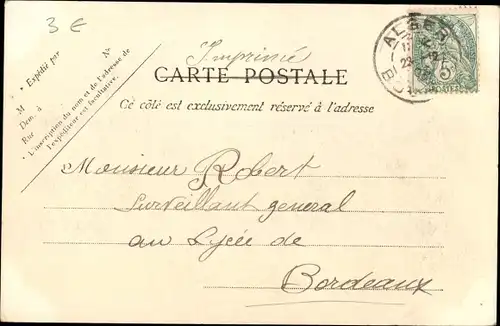 3 €
Imprimé
CARTE POSTALE
Ce côté est exclusivement réservé à l'adresse
Expédié par
M
Dem. à
Rue
N°
L'inscription du nom et de l'adresse de
l'expéditeur est facultative.
ALGER
5
Monsieur Robert
Surveillant general
au Lycée de
Bordeaux